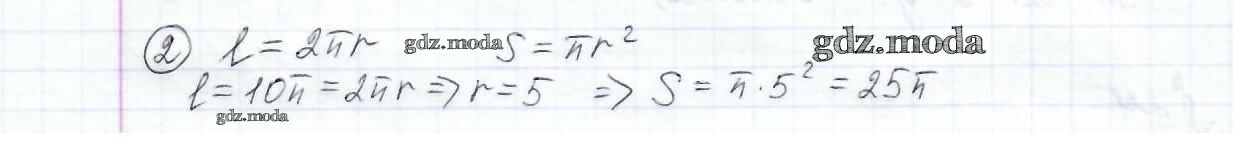 ② l = 2πr gdz.moda S = πr² gdz.moda
l = 10π = 2πr => r = 5 => S = π · 5² = 25π
gdz.moda